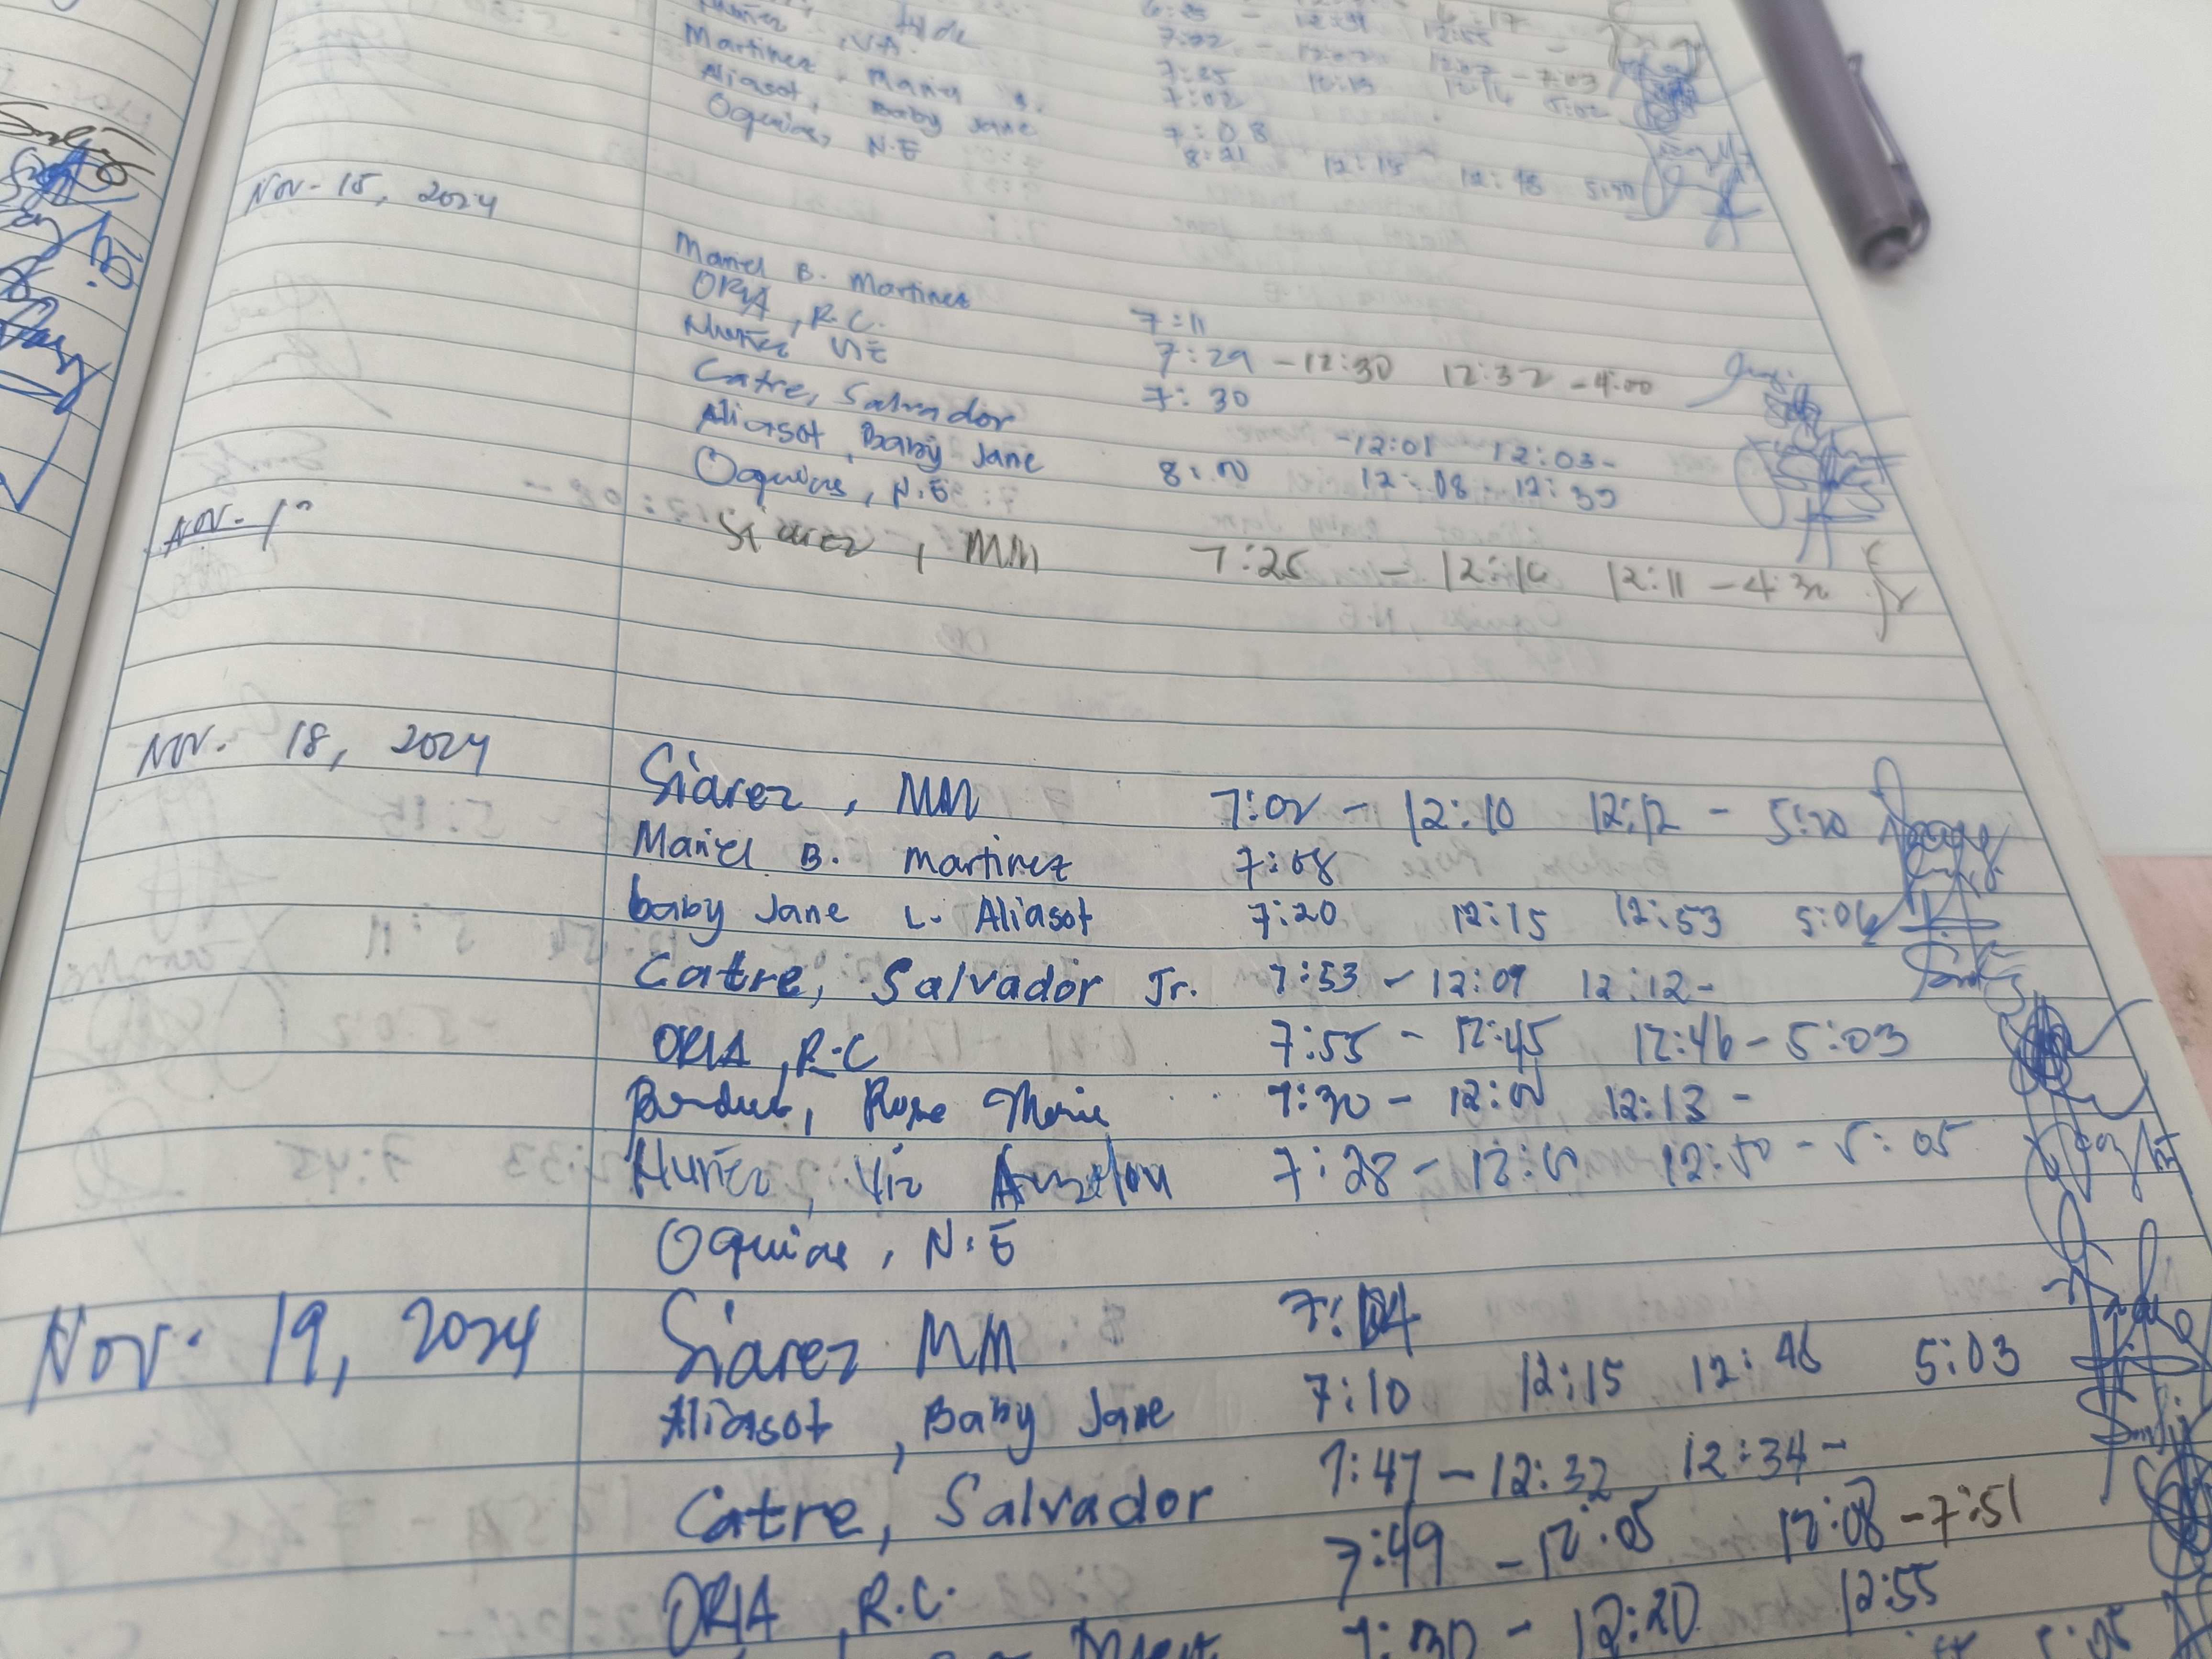 6:25 - 12:31 12:55
Martinez, Mariel B. 7:25 12:13 12:14 5:02
Aliasot, Baby Jane 7:02
Oquias, N.E 7:08
8:21 12:15 12:18 5:30
Nov- 15, 2024
Mariel B. Martinez 7:11
ORIA, R.C. 7:29 - 12:30 12:32 - 4:00
Nuñez VE 7:30
Catre, Salvador -12:01 12:03-
Aliasot, Baby Jane 8:00 12:08 - 12:39
Oquias, N.E
Nov. 1
Siarez, MM 7:25 - 12:10 12:11 - 4:30
Nov. 18, 2024
Siarez, MM 7:02 - 12:10 12:12 - 5:20
Mariel B. Martinez 7:08
baby Jane L. Aliasot 7:20 12:15 12:53 5:06
Catre, Salvador Jr. 7:53 - 12:09 12:12-
ORIA, R.C 7:55 - 12:45 12:46 - 5:03
Rose Marie 7:30 - 12:13 -
Nuñez, Viz 7:28 - 12:50 - 5:05
Oquias, N.E
Nov. 19, 2024
Siarez MM 7:04
Aliasot, Baby Jane 7:10 12:15 12:48 5:03
Catre, Salvador 7:47 - 12:32 12:34 -
ORIA, R.C. 7:49 - 12:05 12:08 - 7:51
7:30 - 12:20 12:55